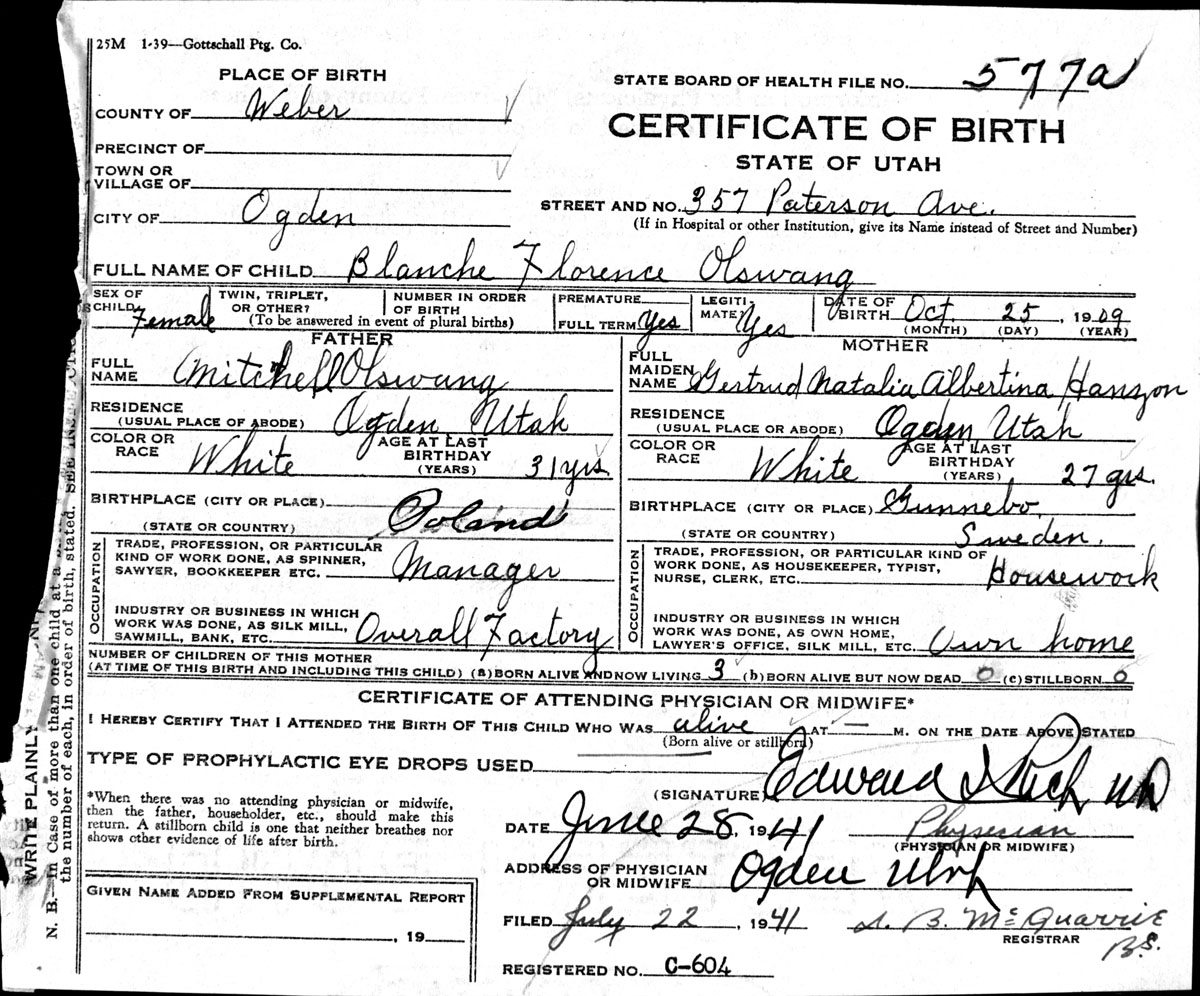 25M 1-39—Gottschall Ptg. Co.
PLACE OF BIRTH
STATE BOARD OF HEALTH FILE NO. 577a
COUNTY OF Weber
CERTIFICATE OF BIRTH
PRECINCT OF
STATE OF UTAH
TOWN OR
VILLAGE OF
STREET AND NO. 357 Paterson Ave.
CITY OF Ogden
(If in Hospital or other Institution, give its Name instead of Street and Number)
FULL NAME OF CHILD Blanche Florence Olswang
SEX OF
CHILD Female
TWIN, TRIPLET,
OR OTHER?
(To be answered in event of plural births)
NUMBER IN ORDER
OF BIRTH
PREMATURE
FULL TERM Yes
LEGITI-
MATE Yes
DATE OF
BIRTH Oct. 25, 1909
(MONTH) (DAY) (YEAR)
FATHER
FULL
NAME Mitchell Olswang
RESIDENCE
(USUAL PLACE OF ABODE) Ogden Utah
COLOR OR
RACE White
AGE AT LAST
BIRTHDAY
(YEARS) 31 yrs
BIRTHPLACE (CITY OR PLACE)
(STATE OR COUNTRY) Poland
OCCUPATION
TRADE, PROFESSION, OR PARTICULAR
KIND OF WORK DONE, AS SPINNER,
SAWYER, BOOKKEEPER ETC. Manager
INDUSTRY OR BUSINESS IN WHICH
WORK WAS DONE, AS SILK MILL,
SAWMILL, BANK, ETC. Overall Factory
MOTHER
FULL
MAIDEN
NAME Gertrud Natalia Albertina Hanzon
RESIDENCE
(USUAL PLACE OR ABODE) Ogden Utah
COLOR OR
RACE White
AGE AT LAST
BIRTHDAY
(YEARS) 27 yrs.
BIRTHPLACE (CITY OR PLACE) Gunnebo,
(STATE OR COUNTRY) Sweden.
OCCUPATION
TRADE, PROFESSION, OR PARTICULAR KIND OF
WORK DONE, AS HOUSEKEEPER, TYPIST,
NURSE, CLERK, ETC. Housework
INDUSTRY OR BUSINESS IN WHICH
WORK WAS DONE, AS OWN HOME,
LAWYER'S OFFICE, SILK MILL, ETC. Own home
NUMBER OF CHILDREN OF THIS MOTHER
(AT TIME OF THIS BIRTH AND INCLUDING THIS CHILD) (a) BORN ALIVE AND NOW LIVING 3 (b) BORN ALIVE BUT NOW DEAD 0 (c) STILLBORN 0
CERTIFICATE OF ATTENDING PHYSICIAN OR MIDWIFE*
I HEREBY CERTIFY THAT I ATTENDED THE BIRTH OF THIS CHILD WHO WAS alive AT — M. ON THE DATE ABOVE STATED
(Born alive or stillborn)
TYPE OF PROPHYLACTIC EYE DROPS USED
*When there was no attending physician or midwife,
then the father, householder, etc., should make this
return. A stillborn child is one that neither breathes nor
shows other evidence of life after birth.
(SIGNATURE) Edward I Rich MD
DATE June 28, 1941 Physician
(PHYSICIAN OR MIDWIFE)
ADDRESS OF PHYSICIAN
OR MIDWIFE Ogden Utah
GIVEN NAME ADDED FROM SUPPLEMENTAL REPORT
, 19
FILED July 22, 1941 McQuarrie
REGISTRAR
B.S.
REGISTERED NO. C-604
WRITE PLAINLY
N. B.—In Case of more than one child at a
the number of each, in order of birth, stated.